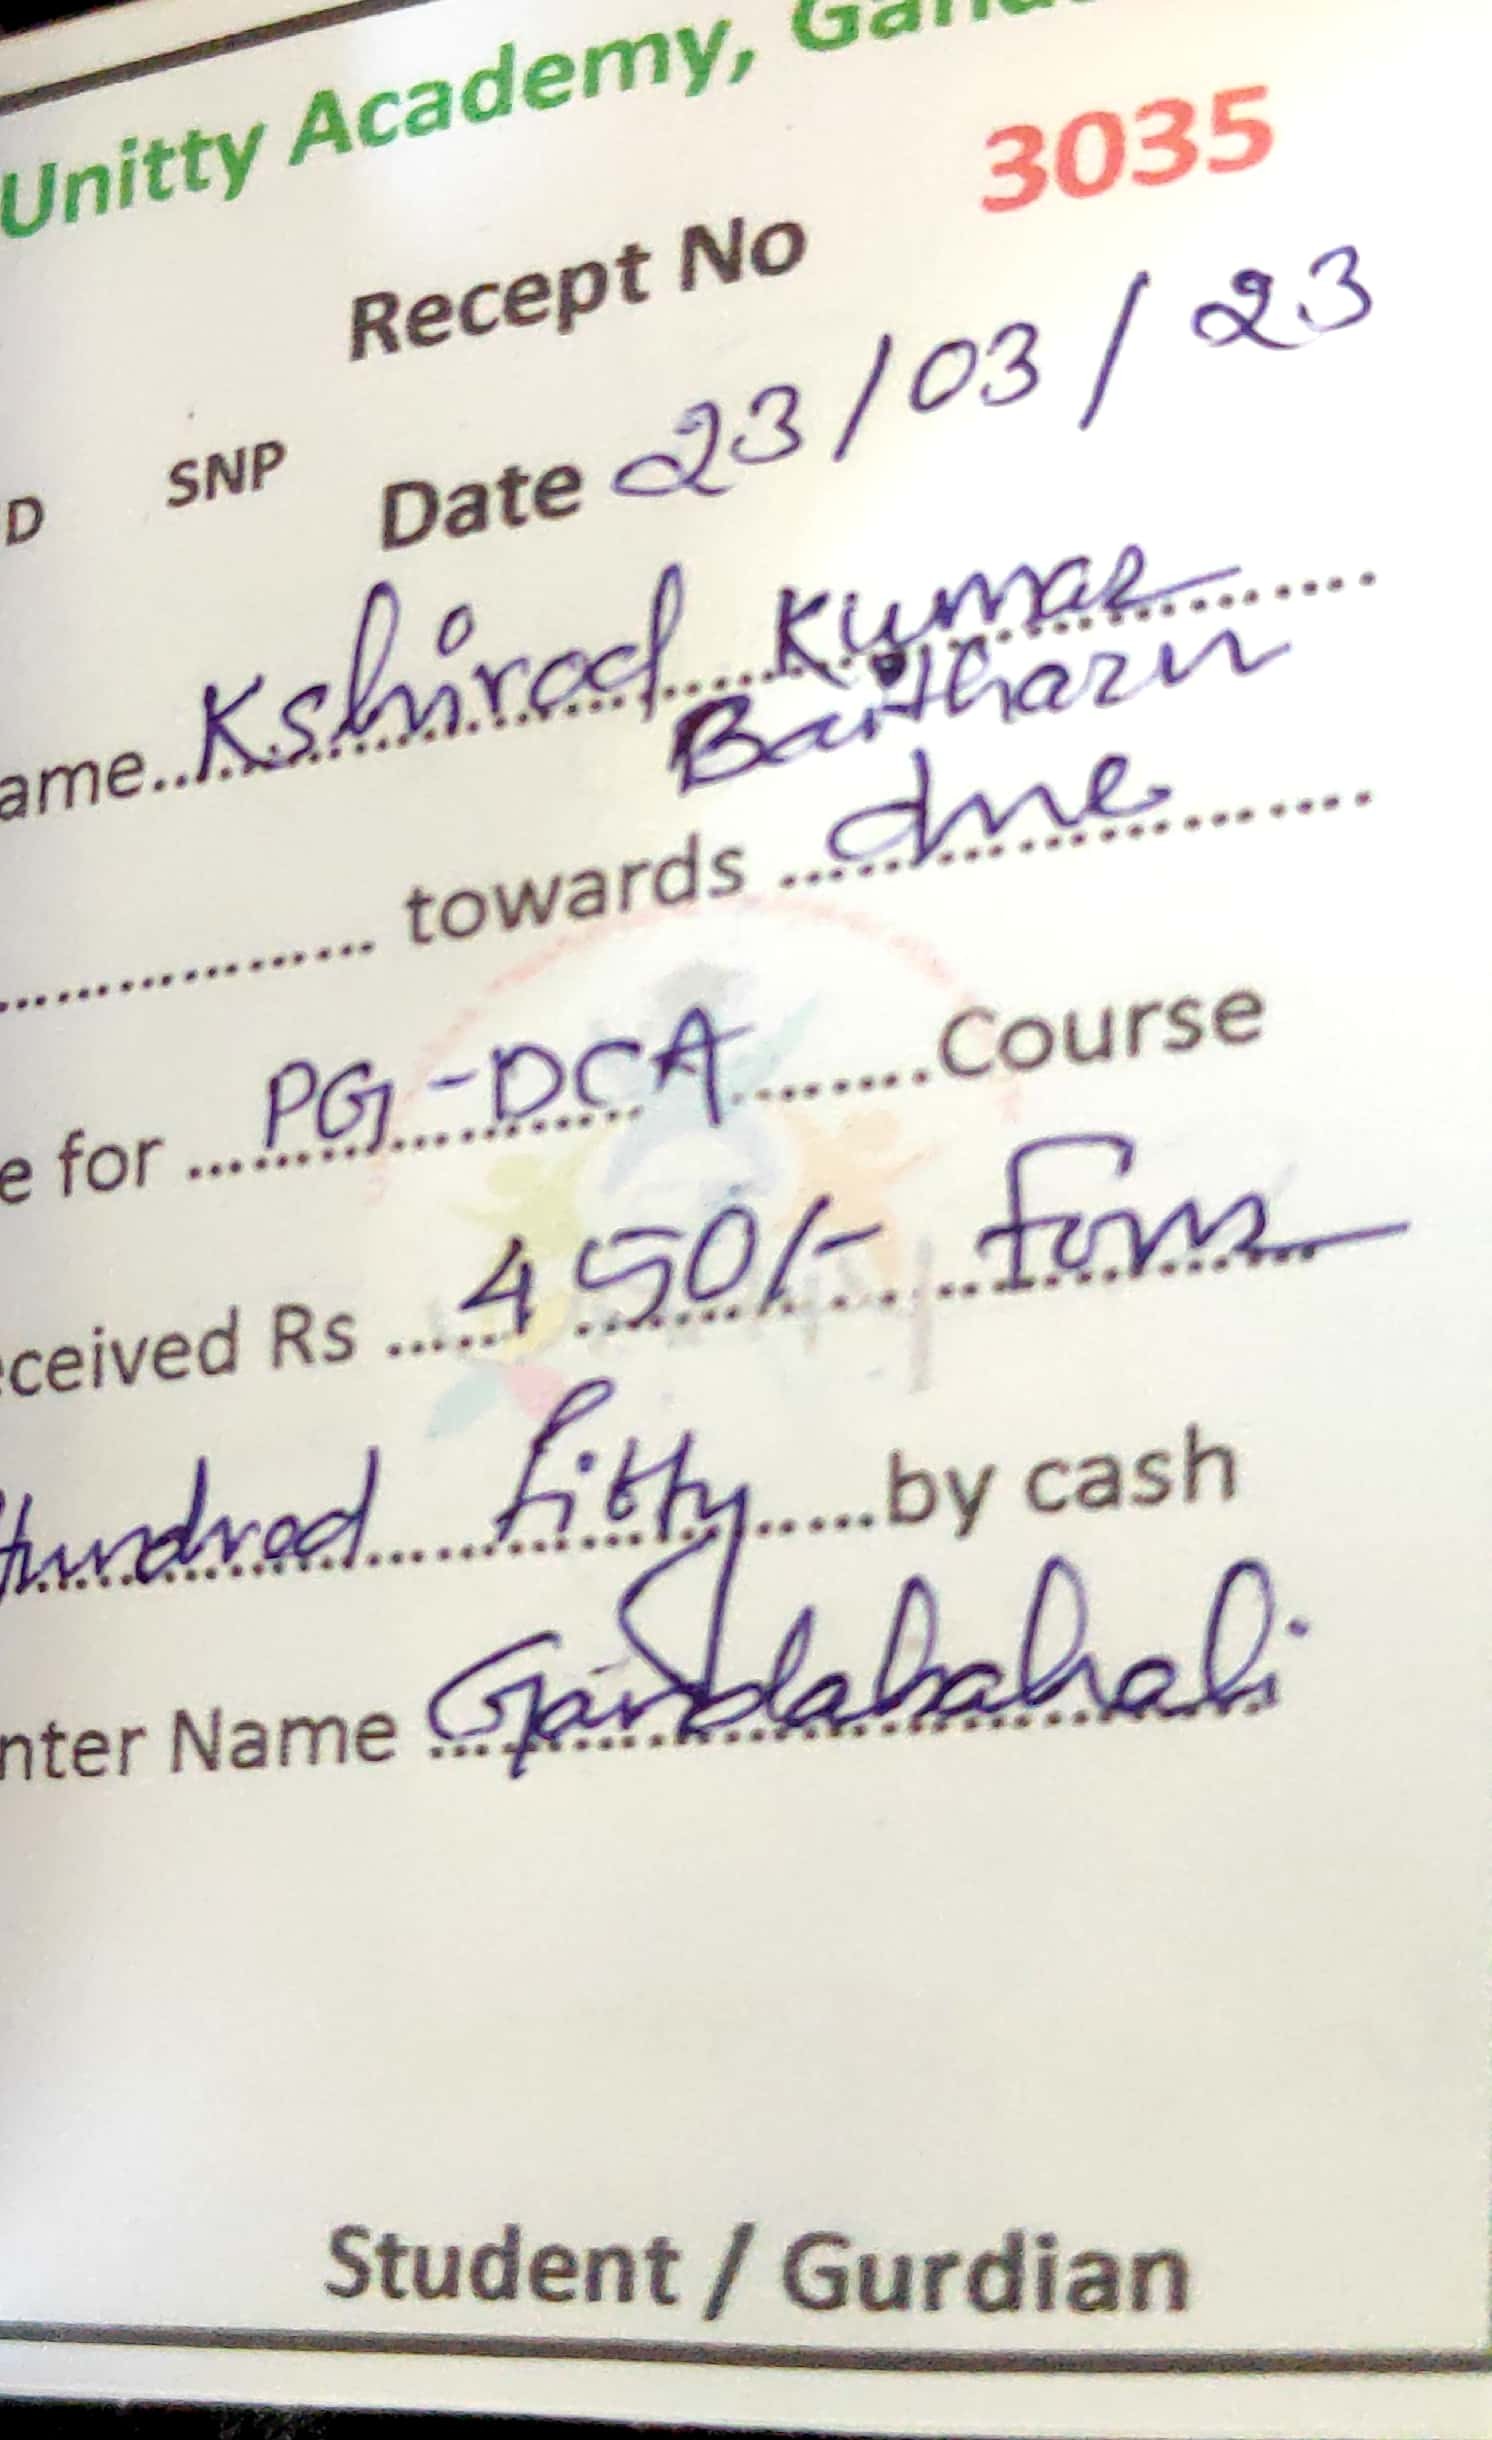 Unitty Academy,
3035
Recept No
D SNP Date 23/03/23
ame Kshirod Kumar
Baitharu
towards due
e for PG-DCA Course
ceived Rs 450/- Four
Hundred fifty by cash
nter Name Gandabahali
Student / Gurdian